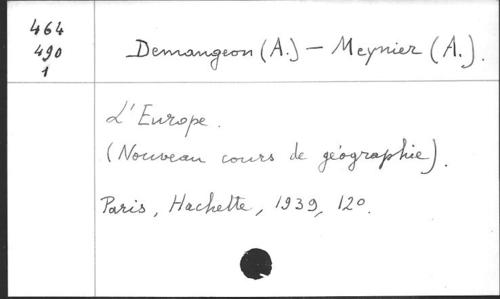 464
490
1
Demangeon (A.) — Meynier (A.).
L'Europe.
(Nouveau cours de géographie).
Paris, Hachette, 1939, 120.